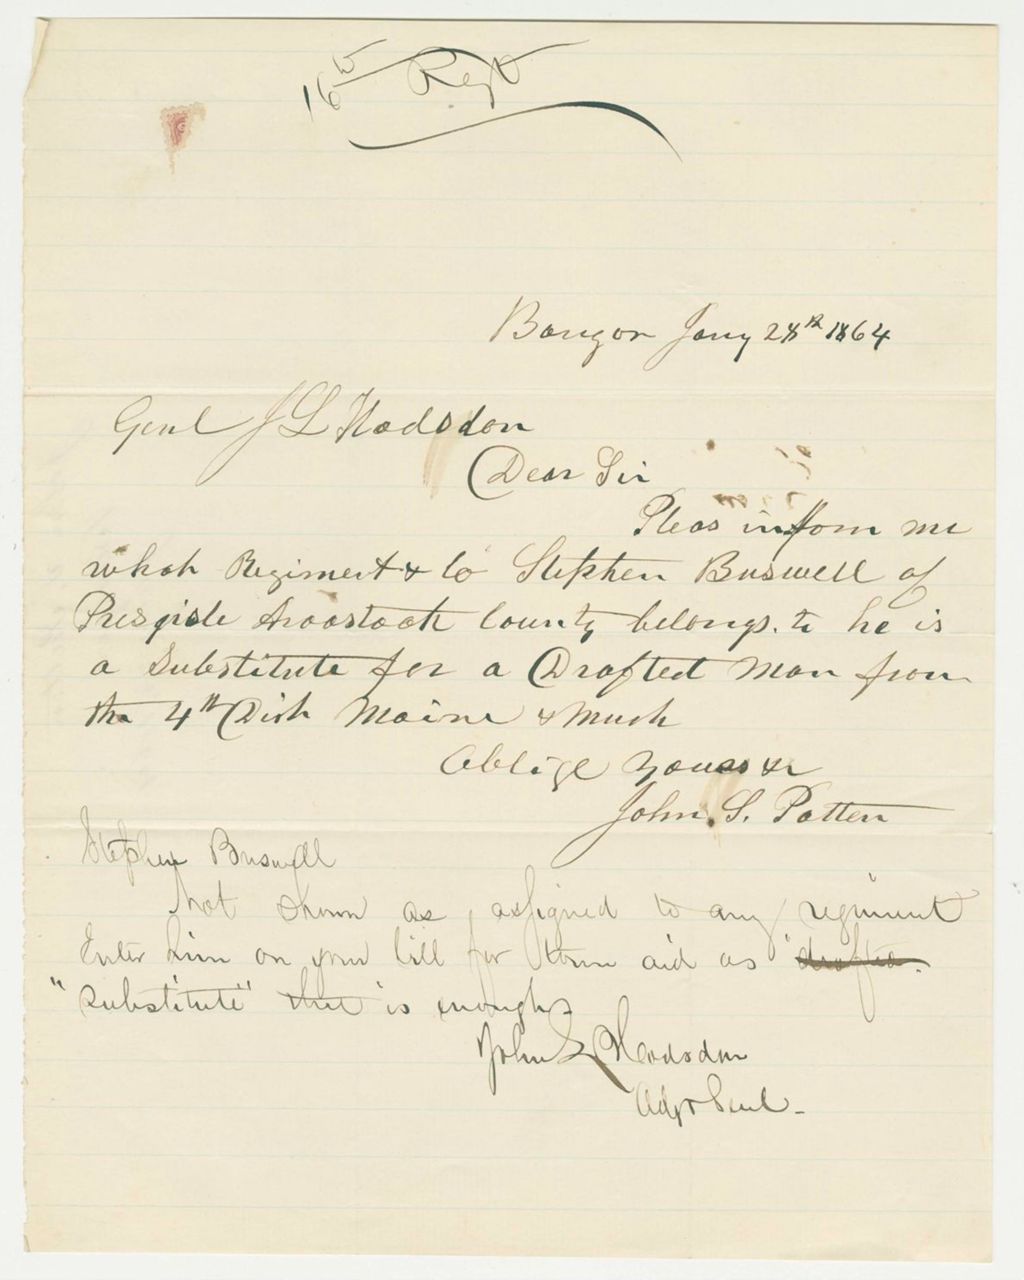 16th Regt
Bangor Jany 28th 1864
Genl J L Hodsdon
Dear Sir
Pleas inform me
what Regiment & Co Stephen Buswell of
Presqisle Aroostook County belongs. to he is
a Substitute for a Drafted Man from
the 4th Dist Maine & Much
Oblige Yours &c
John S. Patten
Stephen Buswell
Not shown as assigned to any regiment
Enter him on your bill for town aid as
"substitute" that is enough
John L Hodsdon
Adjt Genl -